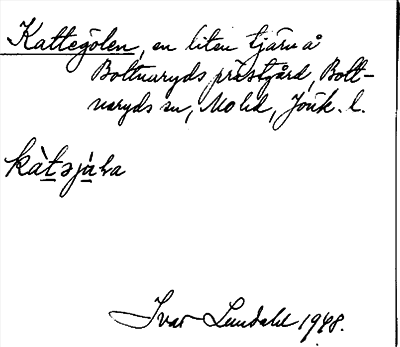 Kattegölen, en liten tjärn å
Bottnaryds prästgård, Bott-
naryds sn, Mo hd, Jönk. l.
Ivar Lundahl 1948.